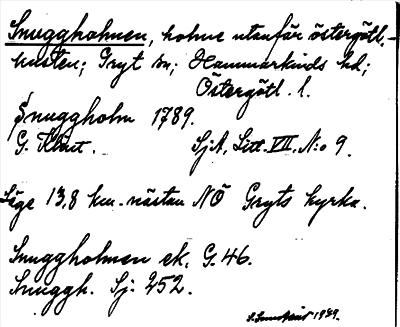 Snuggholmen, holme utanför östergötl.-
kusten; Gryt sn; Hammarkinds hd;
Östergötl. l.
Snuggholm 1789.
G. Klint. SjA, Litt. VII, N:o 9.
Läge 13,8 km. nästan NÖ Gryts kyrka.
Snuggholmen ek. G. 46.
Snuggh. Sj. 252.
1939.